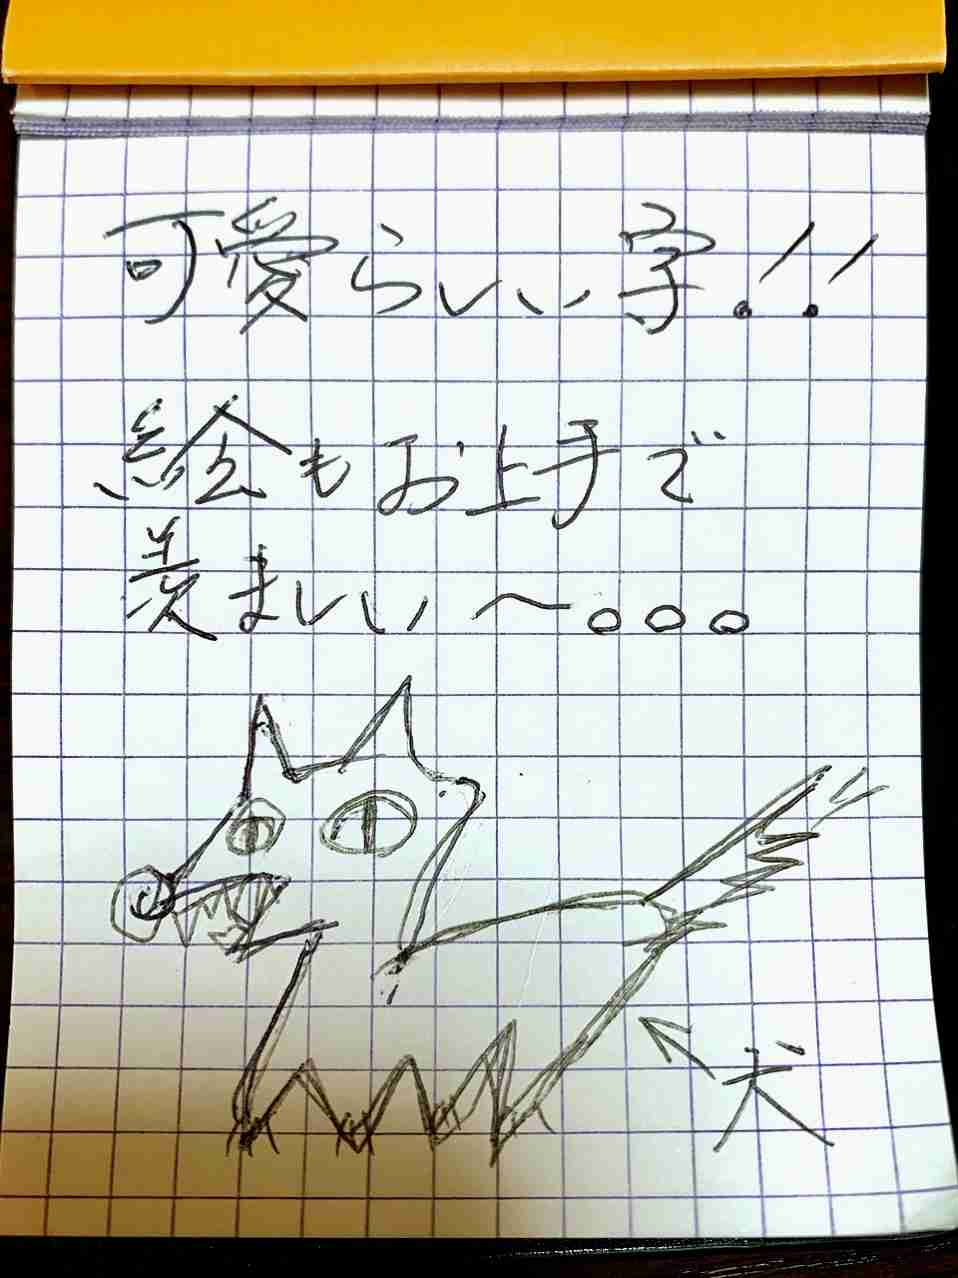 可愛らしい字!!
絵もお上手で
羨ましい〜。。。
犬